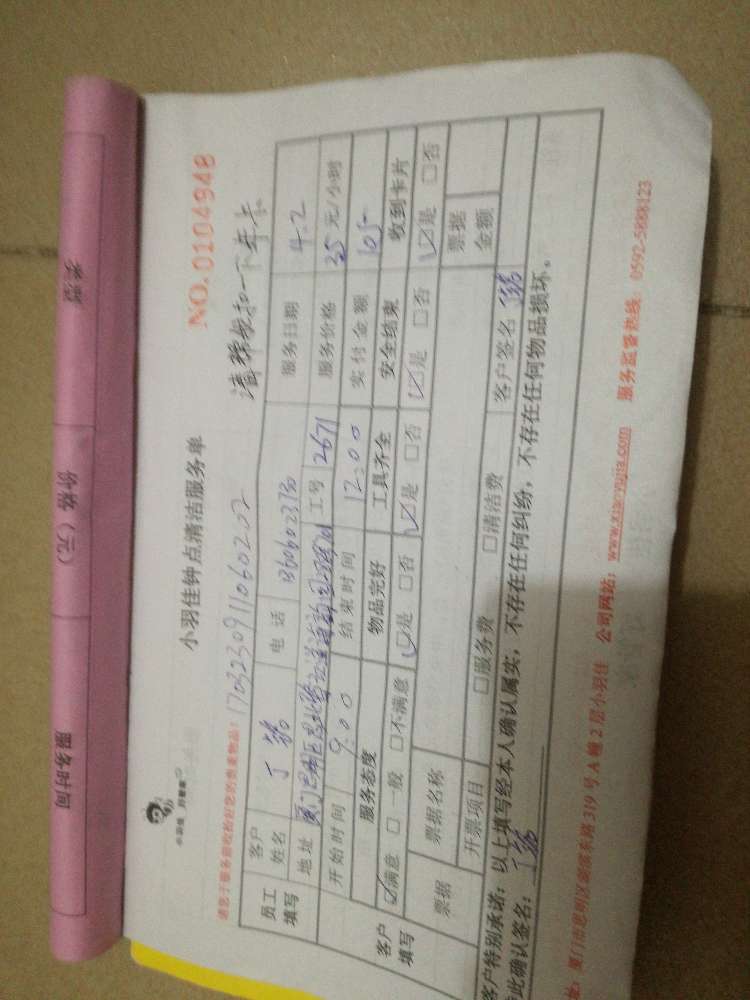 类型
价格（元）
服务时间
小羽佳钟点清洁服务单
NO.0104948
请您于服务前收拾好您的贵重物品!
1703230911060202
请帮忙扣一下年卡
员工填写
客户姓名
电话
服务日期 4.2
地址
工号 2671
服务价格 35元/小时
开始时间 9:00
结束时间 12:00
实付金额 105-
客户填写
服务态度
物品完好
工具齐全
安全结束
收到卡片
☑满意 □一般 □不满意
☑是 □否
☑是 □否
☑是 □否
☑是 □否
票据
票据名称
票据金额
开票项目
□服务费 □清洁费
客户签名
客户特别承诺：以上填写经本人确认属实，不存在任何纠纷，不存在任何物品损坏。
此确认签名：
址：厦门市思明区湖滨东路319号A幢2层小羽佳 公司网站：www.xiaoyujia.com 服务监督热线 0592-5888123